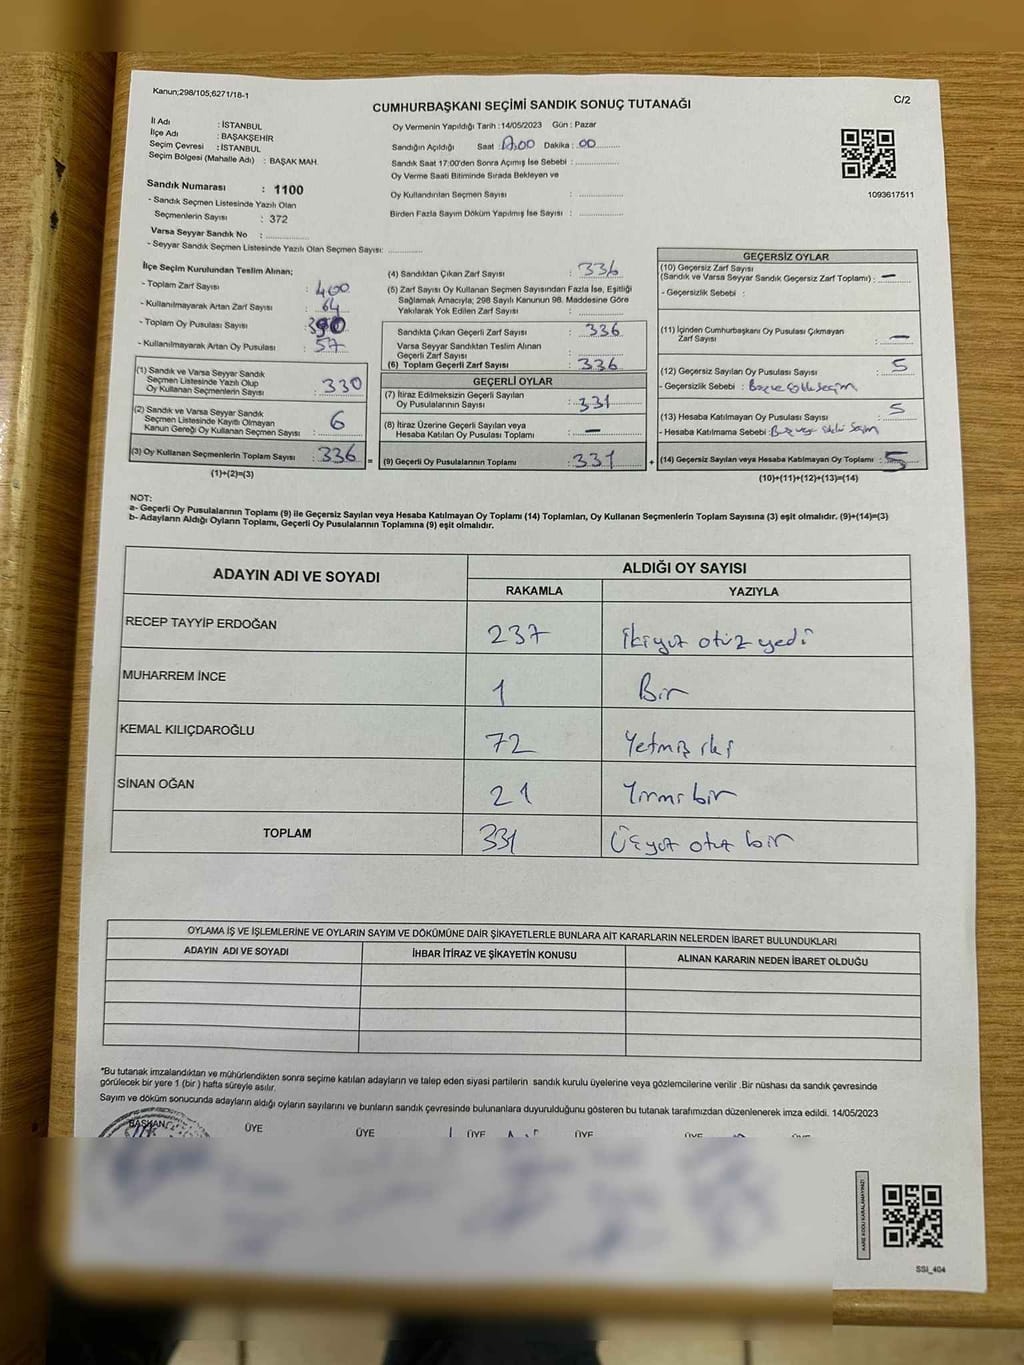 Kanun;298/105;6271/18-1
C/2
CUMHURBAŞKANI SEÇİMİ SANDIK SONUÇ TUTANAĞI
İl Adı : İSTANBUL
İlçe Adı : BAŞAKŞEHİR
Seçim Çevresi : İSTANBUL
Seçim Bölgesi (Mahalle Adı) : BAŞAK MAH.
Oy Vermenin Yapıldığı Tarih : 14/05/2023 Gün : Pazar
Sandığın Açıldığı Saat : Dakika : 00
Sandık Saat 17:00'den Sonra Açımış İse Sebebi :
Oy Verme Saati Bitiminde Sırada Bekleyen ve
Oy Kullandırılan Seçmen Sayısı :
Birden Fazla Sayım Döküm Yapılmış İse Sayısı :
1093617511
Sandık Numarası : 1100
- Sandık Seçmen Listesinde Yazılı Olan
Seçmenlerin Sayısı : 372
Varsa Seyyar Sandık No :
- Seyyar Sandık Seçmen Listesinde Yazılı Olan Seçmen Sayısı:
İlçe Seçim Kurulundan Teslim Alınan;
- Toplam Zarf Sayısı : 400
- Kullanılmayarak Artan Zarf Sayısı : 64
- Toplam Oy Pusulası Sayısı :
- Kullanılmayarak Artan Oy Pusulası : 57
(1) Sandık ve Varsa Seyyar Sandık
Seçmen Listesinde Yazılı Olup
Oy Kullanan Seçmenlerin Sayısı : 330
(2) Sandık ve Varsa Seyyar Sandık
Seçmen Listesinde Kayıtlı Olmayan
Kanun Gereği Oy Kullanan Seçmen Sayısı : 6
(3) Oy Kullanan Seçmenlerin Toplam Sayısı : 336 =
(1)+(2)=(3)
(4) Sandıktan Çıkan Zarf Sayısı : 336
(5) Zarf Sayısı Oy Kullanan Seçmen Sayısından Fazla İse, Eşitliği
Sağlamak Amacıyla; 298 Sayılı Kanunun 98. Maddesine Göre
Yakılarak Yok Edilen Zarf Sayısı :
Sandıkta Çıkan Geçerli Zarf Sayısı : 336
Varsa Seyyar Sandıktan Teslim Alınan
Geçerli Zarf Sayısı :
(6) Toplam Geçerli Zarf Sayısı : 336
GEÇERLİ OYLAR
(7) İtiraz Edilmeksizin Geçerli Sayılan
Oy Pusulalarının Sayısı : 331
(8) İtiraz Üzerine Geçerli Sayılan veya
Hesaba Katılan Oy Pusulası Toplamı : –
(9) Geçerli Oy Pusulalarının Toplamı : 331 +
GEÇERSİZ OYLAR
(10) Geçersiz Zarf Sayısı
(Sandık ve Varsa Seyyar Sandık Geçersiz Zarf Toplamı) : –
- Geçersizlik Sebebi :
(11) İçinden Cumhurbaşkanı Oy Pusulası Çıkmayan
Zarf Sayısı : –
(12) Geçersiz Sayılan Oy Pusulası Sayısı : 5
- Geçersizlik Sebebi :
(13) Hesaba Katılmayan Oy Pusulası Sayısı : 5
- Hesaba Katılmama Sebebi :
(14) Geçersiz Sayılan veya Hesaba Katılmayan Oy Toplamı : 5
(10)+(11)+(12)+(13)=(14)
NOT:
a- Geçerli Oy Pusulalarının Toplamı (9) ile Geçersiz Sayılan veya Hesaba Katılmayan Oy Toplamı (14) Toplamları, Oy Kullanan Seçmenlerin Toplam Sayısına (3) eşit olmalıdır. (9)+(14)=(3)
b- Adayların Aldığı Oyların Toplamı, Geçerli Oy Pusulalarının Toplamına (9) eşit olmalıdır.
ADAYIN ADI VE SOYADI
ALDIĞI OY SAYISI
RAKAMLA YAZIYLA
RECEP TAYYİP ERDOĞAN 237 ikiyüz otüz yedi
MUHARREM İNCE 1 Bir
KEMAL KILIÇDAROĞLU 72 Yetmiş iki
SİNAN OĞAN 21 Yirmi bir
TOPLAM 331 Üçyüz otuz bir
OYLAMA İŞ VE İŞLEMLERİNE VE OYLARIN SAYIM VE DÖKÜMÜNE DAİR ŞİKAYETLERLE BUNLARA AİT KARARLARIN NELERDEN İBARET BULUNDUKLARI
ADAYIN ADI VE SOYADI İHBAR İTİRAZ VE ŞİKAYETİN KONUSU ALINAN KARARIN NEDEN İBARET OLDUĞU
*Bu tutanak imzalandıktan ve mühürlendikten sonra seçime katılan adayların ve talep eden siyasi partilerin sandık kurulu üyelerine veya gözlemcilerine verilir .Bir nüshası da sandık çevresinde
görülecek bir yere 1 (bir ) hafta süreyle asılır.
Sayım ve döküm sonucunda adayların aldığı oyların sayılarını ve bunların sandık çevresinde bulunanlara duyurulduğunu gösteren bu tutanak tarafımızdan düzenlenerek imza edildi. 14/05/2023
BAŞKAN ÜYE ÜYE ÜYE ÜYE ÜYE ÜYE
KARE KODU KARALAMAYINIZ!
SSI_404